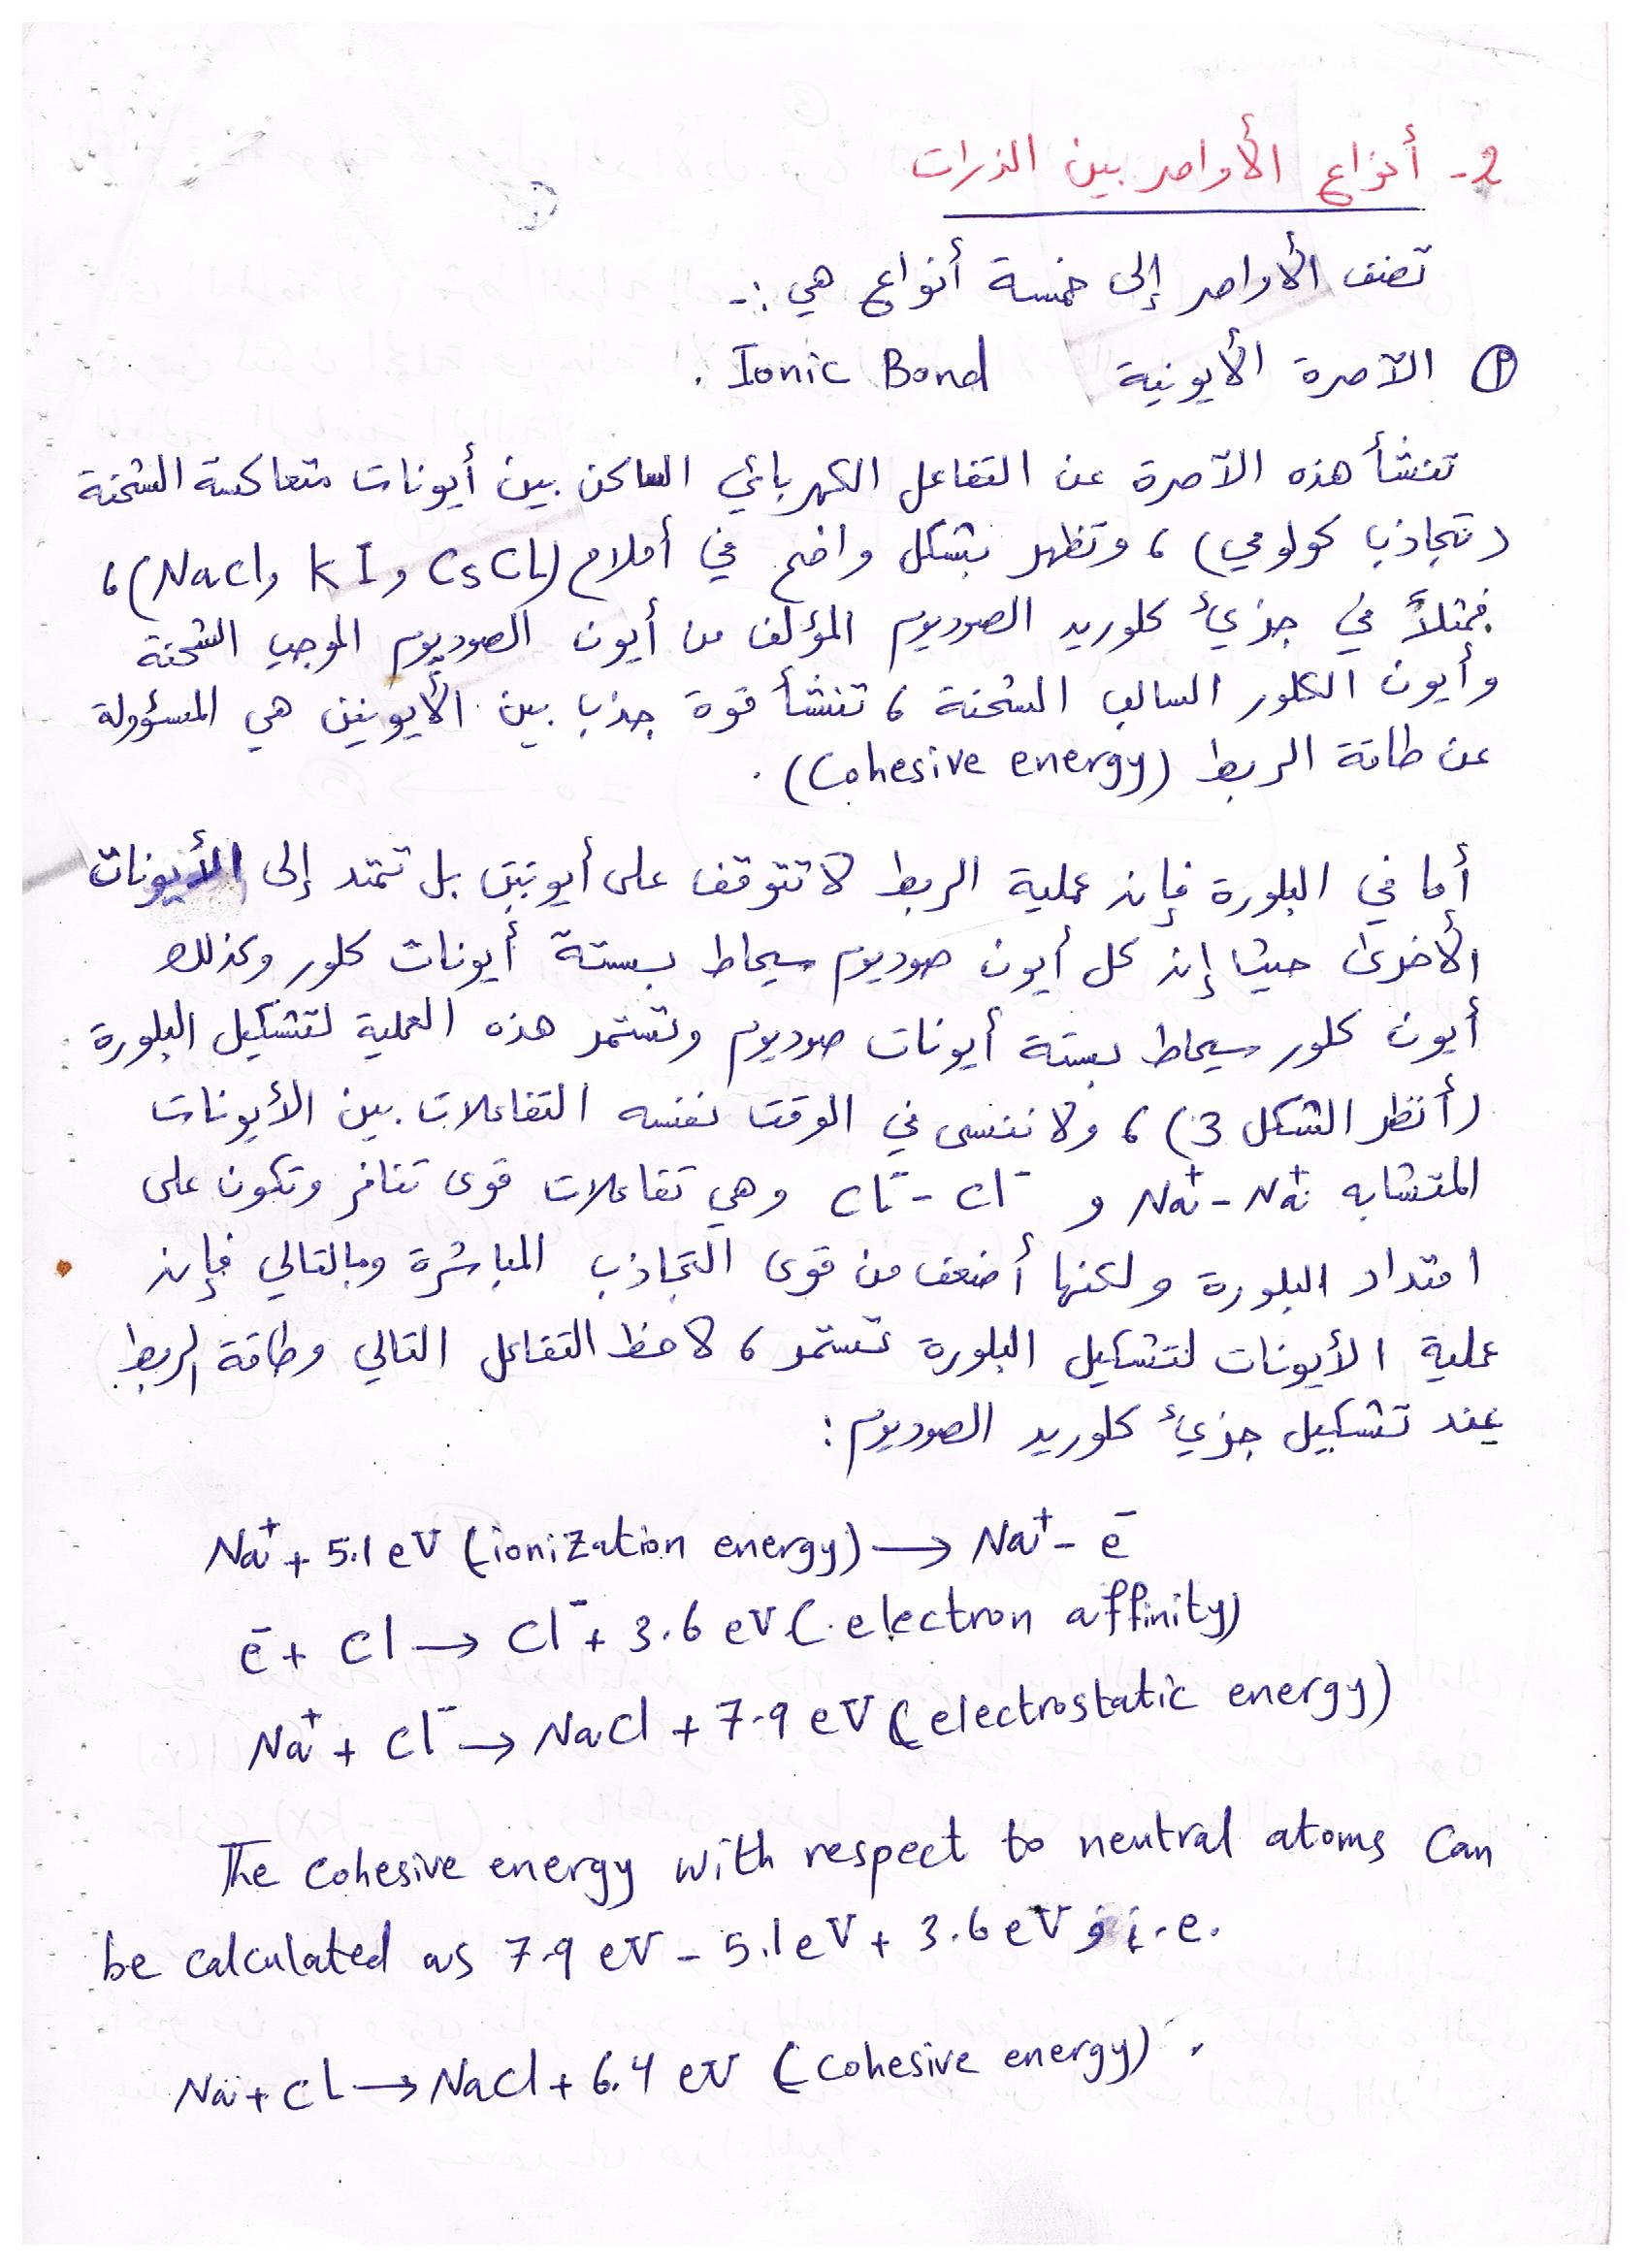 2- أنواع الأواصر بين الذرات
تصنف الأواصر إلى خمسة أنواع هي :-
① الآصرة الأيونية Ionic Bond .
تنشأ هذه الآصرة عن التفاعل الكهربائي الساكن بين أيونات متعاكسة الشحنة
(تجاذب كولومي) ، وتظهر بشكل واضح في أملاح (NaCl, KI, CsCl) ،
فمثلاً في جزيئ كلوريد الصوديوم المؤلف من أيون الصوديوم الموجب الشحنة
وأيون الكلور السالب الشحنة ، تنشأ قوة جذب بين الأيونين هي المسؤولة
عن طاقة الربط (Cohesive energy) .
أما في البلورة فإن عملية الربط لا تتوقف على أيونين بل تمتد إلى الأيونات
الأخرى حيث إن كل أيون صوديوم سيحاط بستة أيونات كلور وكذلك
أيون كلور سيحاط بستة أيونات صوديوم وتستمر هذه العملية لتشكيل البلورة
(أنظر الشكل 3) ، ولا ننسى في الوقت نفسه التفاعلات بين الأيونات
المتشابه Na⁺ - Na⁺ و Cl⁻ - Cl⁻ وهي تفاعلات قوى تنافر وتكون على
امتداد البلورة ولكنها أضعف من قوى التجاذب المباشرة وبالتالي فإن
عملية الأيونات لتشكيل البلورة تستمر ، لاحظ التفاعل التالي وطاقة الربط
عند تشكيل جزيئ كلوريد الصوديوم :
Na⁺ + 5.1 eV (ionization energy) → Na⁺ - e⁻
e⁻ + Cl → Cl⁻ + 3.6 eV (electron affinity)
Na⁺ + Cl⁻ → NaCl + 7.9 eV (electrostatic energy)
The cohesive energy with respect to neutral atoms can
be calculated as 7.9 eV - 5.1 eV + 3.6 eV , i.e.
Na + Cl → NaCl + 6.4 eV (cohesive energy) .